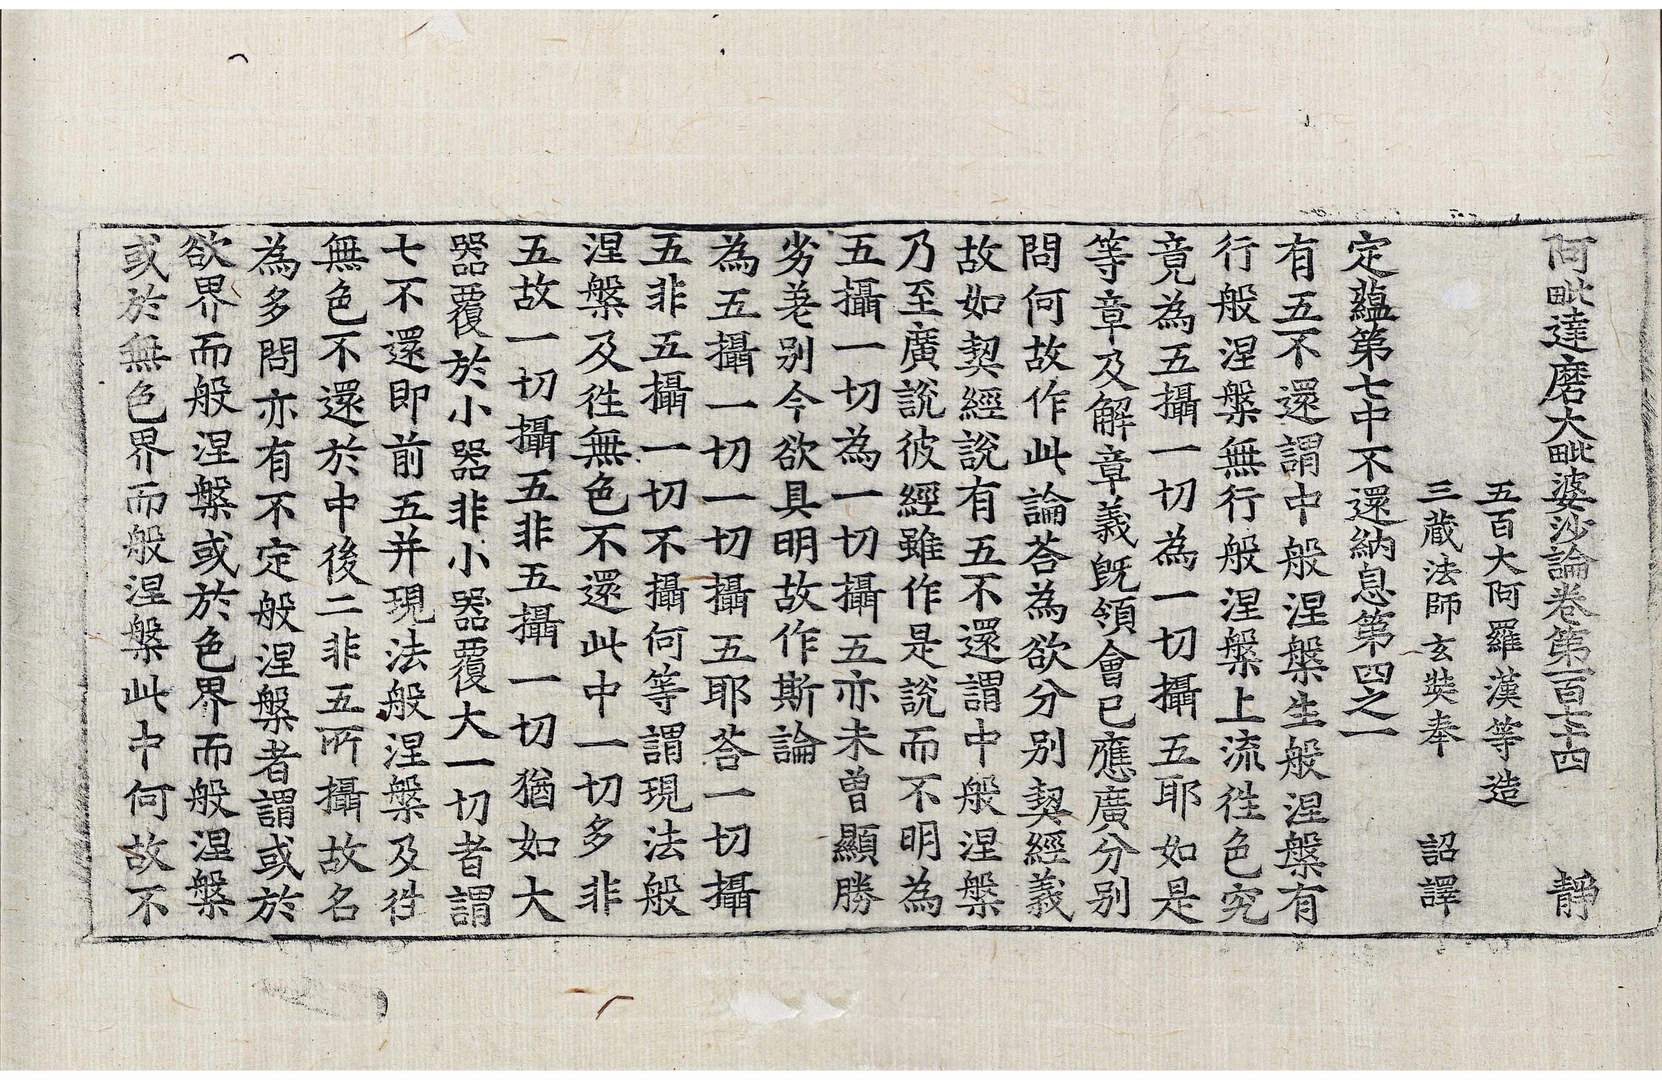 阿毗達磨大毗婆沙論卷第一百七十四　靜
五百大阿羅漢等造
三藏法師玄奘奉　詔譯
定蘊第七中不還納息第四之一
有五不還謂中般涅槃生般涅槃有
行般涅槃無行般涅槃上流徃色究
竟為五攝一切為一切攝五耶如是
等章及解章義旣領會已應廣分別
問何故作此論荅為欲分別契經義
故如契經說有五不還謂中般涅槃
乃至廣說彼經雖作是說而不明為
五攝一切為一切攝五亦未曾顯勝
劣差別今欲具明故作斯論
為五攝一切一切攝五耶荅一切攝
五非五攝一切不攝何等謂現法般
涅槃及徃無色不還此中一切多非
五故一切攝五非五攝一切猶如大
器覆於小器非小器覆大一切者謂
七不還即前五并現法般涅槃及徃
無色不還於中後二非五所攝故名
為多問亦有不定般涅槃者謂或於
欲界而般涅槃或於色界而般涅槃
或於無色界而般涅槃此中何故不